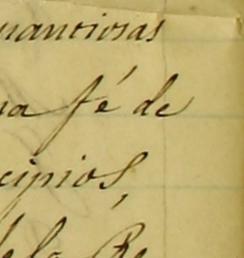 nanciosas
na fé de
cipios,
de la Re